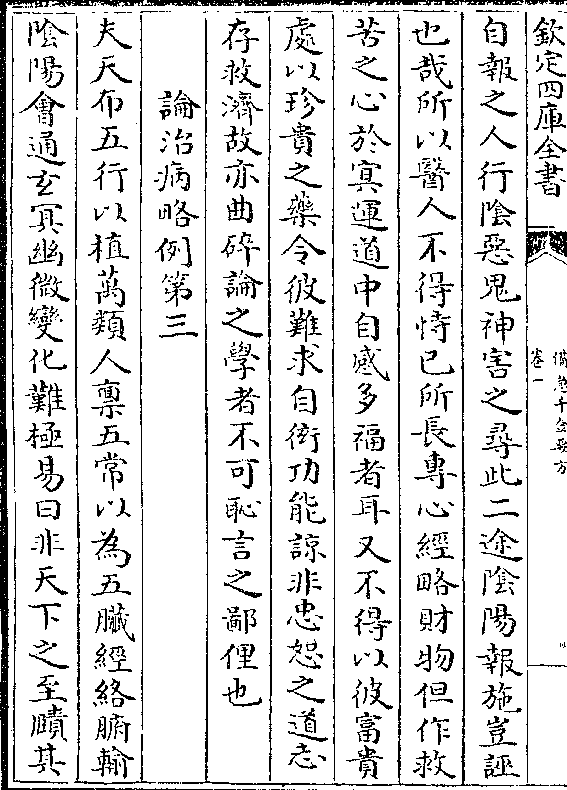 欽定四庫全書
備急千金要方
卷一
自報之人行陰惡鬼神害之尋此二途陰陽報施豈誣
也哉所以醫人不得恃己所長專心經略財物但作救
苦之心於冥運道中自感多福者耳又不得以彼富貴
處以珍貴之藥令彼難求自衒功能諒非忠恕之道志
存救濟故亦曲碎論之學者不可恥言之鄙俚也
論治病略例第三
夫天布五行以植萬類人稟五常以為五臟經絡腑輸
陰陽會通玄冥幽微變化難極易曰非天下之至賾其